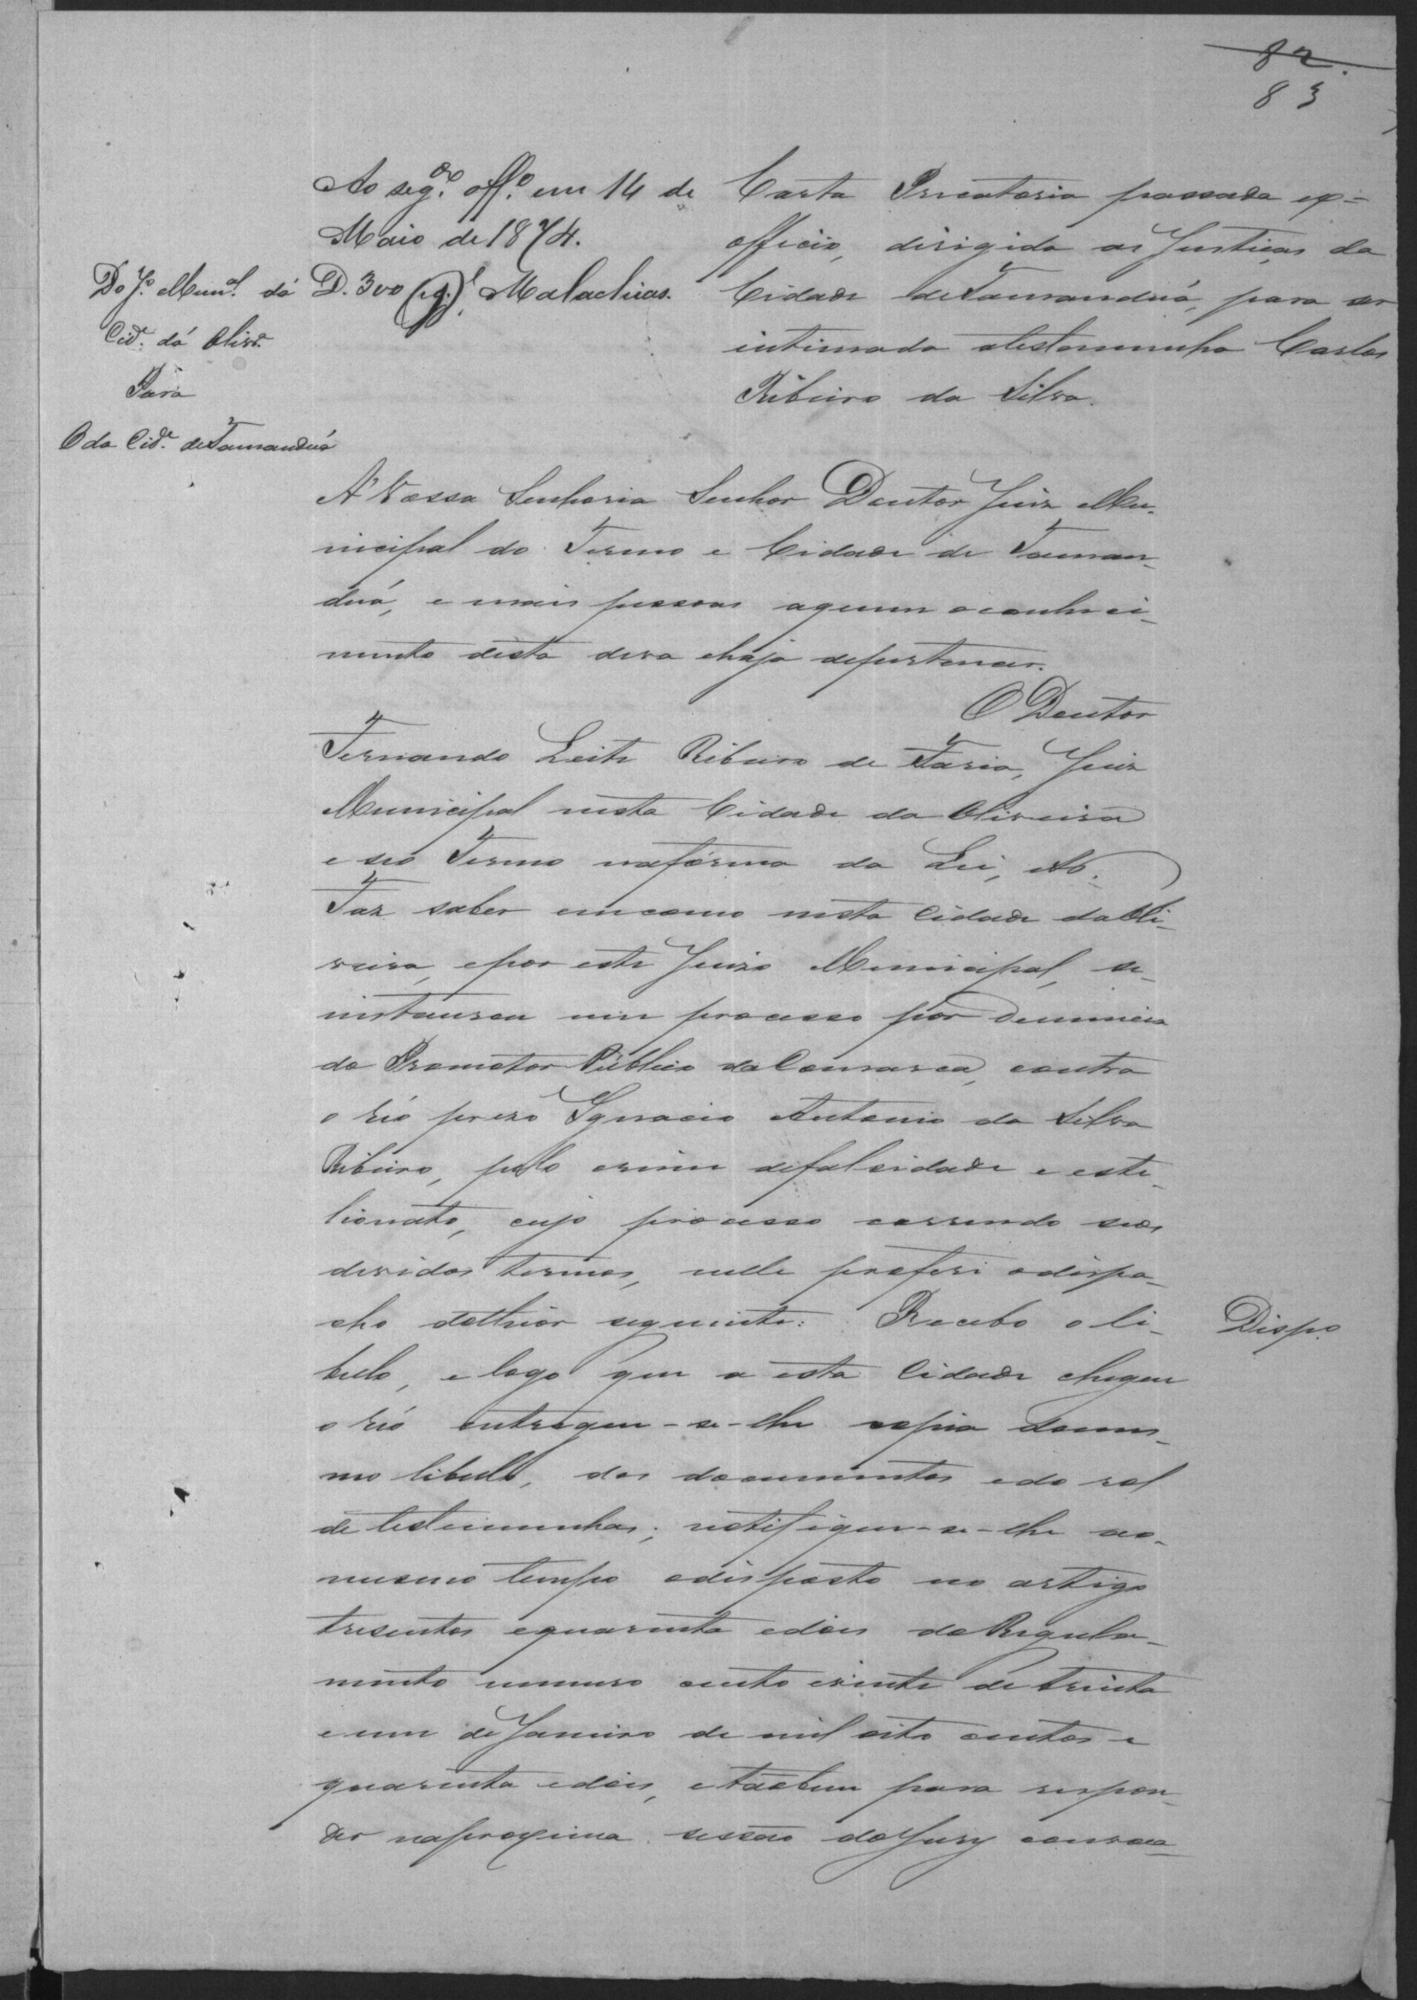 82.
83
Ao seg.do off.o em 14 de
Maio de 1874.
D. 300 Malachias.
Do J.o Mun.al da
Cid.e da Olivr.a
Para
O da Cid.e de Tamanduá
Carta Precatoria passada ex=
officio, dirigida as Justiças da
Cidade de Tamanduá, para ser
intimada atestemunha Carlos
Ribeiro da Silva.
A' Vossa Senhoria Senhor Doutor Juiz Mu-
nicipal do Termo e Cidade de Taman-
duá, e mais pessoas aquem oconheci-
mento desta deva ehaja depertencer.
O Doutor
Fernando Leite Ribeiro de Faria, Juiz
Municipal nesta Cidade da Oliveira
e seo Termo nafórma da Lei, etc.
Faz saber emcomo nesta Cidade daOli-
veira, epor este Juizo Municipal, se-
instaurou um processo por denuncia
do Promotor Publico daComarca, contra
o réo prezo Ignacio Antonio da Silva
Ribeiro, pelo crime defalsidade e este-
lionato, cujo processo correndo seos
devidos termos, nelle proferi odispa-
cho dotheor seguinte: Recebo o li-
bello, e logo que a esta Cidade chegue
o réo entregue-se-lhe copia domes-
mo libello, dos documentos edo rol
de testemunhas; notifique-se-lhe ao-
mesmo tempo odisposto no artigo
tresentos equarenta edois doRegula-
mento numero cento evinte de trinta
e um de Janeiro de mil oito centos e
quarenta edois, etãobem para respon-
der naproxima sessão doJury convoca-
Dispo.